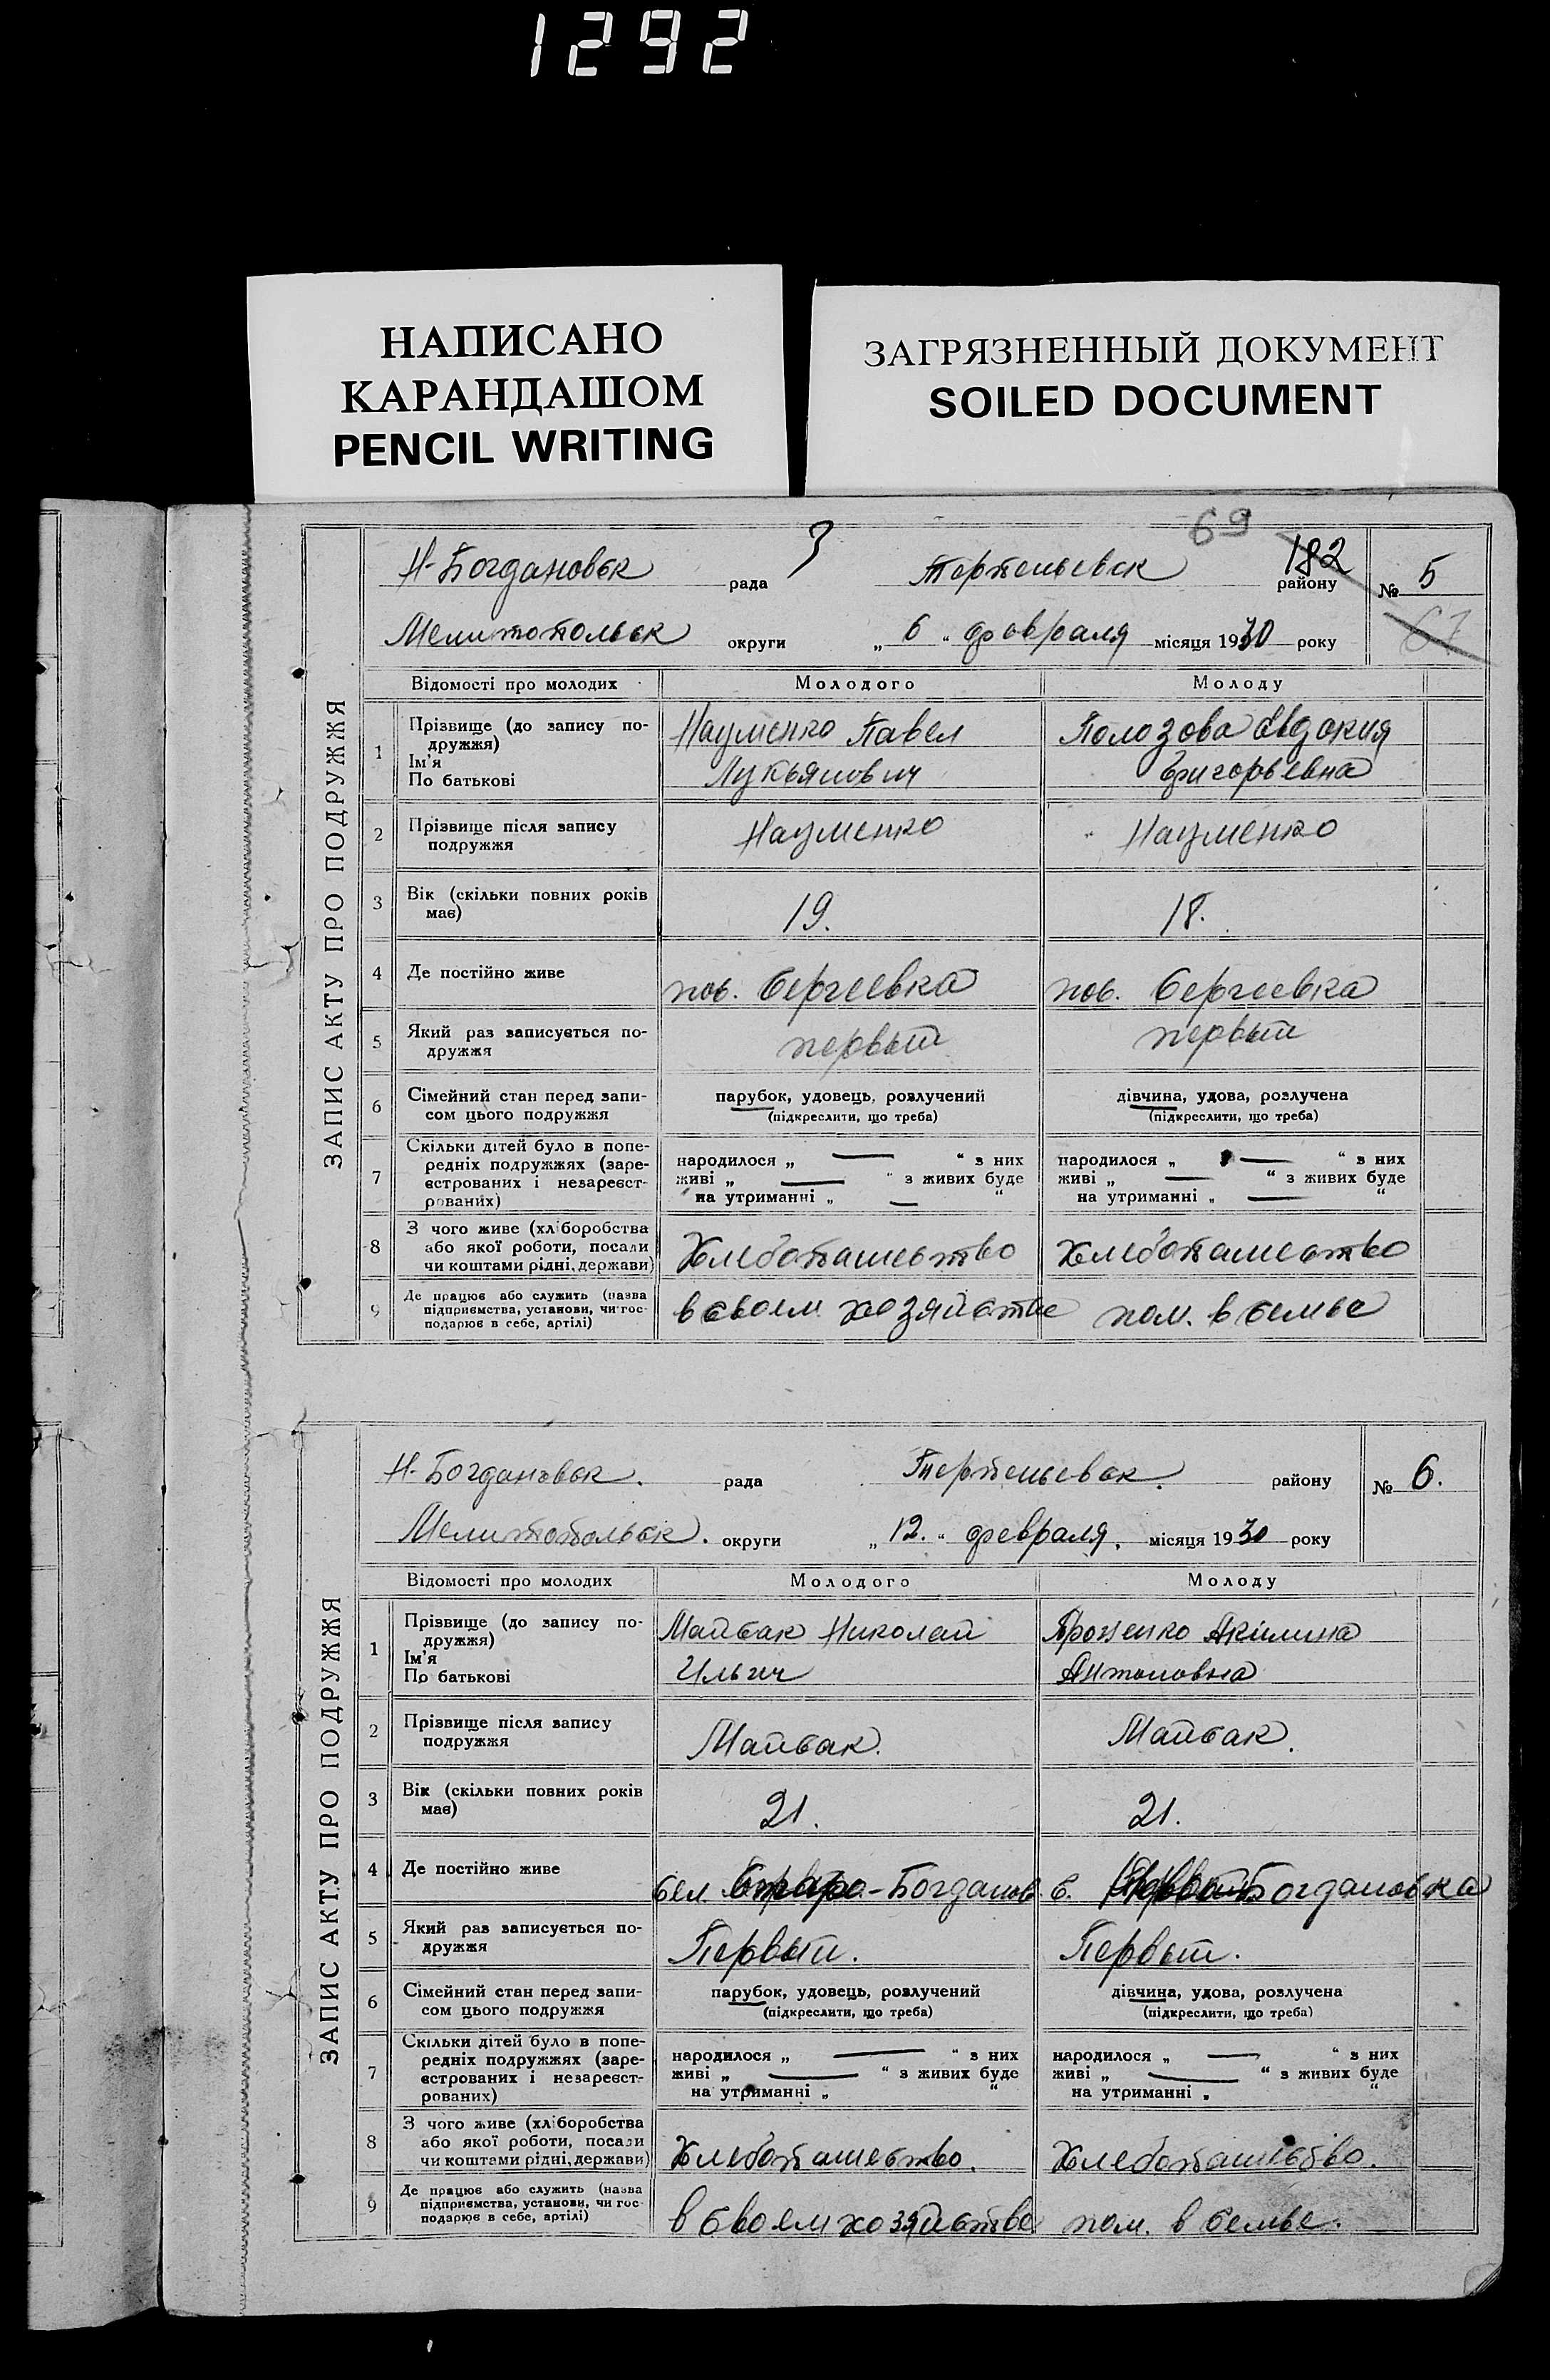 1292
НАПИСАНО
КАРАНДАШОМ
PENCIL WRITING
ЗАГРЯЗНЕННЫЙ ДОКУМЕНТ
SOILED DOCUMENT
69
ЗАПИС АКТУ ПРО ПОДРУЖЖЯ
Н-Богдановск рада Терпеньевск 182 району № 5
Мелитопольск округи „ 6 “ февраля місяця 1930 року 67
Відомості про молодих Молодого Молоду
1 Прізвище (до запису по- Науменко Павел Полозова Евдокия
дружжя)
Ім'я Лукьянович Григорьевна
По батькові
2 Прізвище після запису Науменко Науменко
подружжя
3 Вік (скільки повних років 19. 18.
має)
4 Де постійно живе пос. Сергеевка пос. Сергеевка
5 Який раз записується по- первый первый
дружжя
6 Сімейний стан перед запи- парубок, удовець, розлучений дівчина, удова, розлучена
сом цього подружжя (підкреслити, що треба) (підкреслити, що треба)
7 Скільки дітей було в попе-
редніх подружжях (заре- народилося „ — “ з них народилося „ — “ з них
єстрованих і незареєст- живі „ — “ з живих буде живі „ — “ з живих буде
рованих) на утриманні „ — “ на утриманні „ — “
8 З чого живе (хліборобства
або якої роботи, посади Хлебопашество Хлебопашество
чи коштами рідні, держави)
9 Де працює або служить (назва
підприємства, установи, чи гос- в своем хозяйстве пом. в семье
подарює в себе, артілі)
ЗАПИС АКТУ ПРО ПОДРУЖЖЯ
Н-Богдановск. рада Терпеньевск. району № 6.
Мелитопольск. округи „ 12. “ февраля. місяця 1930 року
Відомості про молодих Молодого Молоду
1 Прізвище (до запису по- Майбак Николай Акилина
дружжя)
Ім'я Ильич Антоновна
По батькові
2 Прізвище після запису Майбак. Майбак.
подружжя
3 Вік (скільки повних років 21. 21.
має)
4 Де постійно живе сел -Богданов с. Богдановка
5 Який раз записується по- Первый. Первый.
дружжя
6 Сімейний стан перед запи- парубок, удовець, розлучений дівчина, удова, розлучена
сом цього подружжя (підкреслити, що треба) (підкреслити, що треба)
7 Скільки дітей було в попе-
редніх подружжях (заре- народилося „ — “ з них народилося „ — “ з них
єстрованих і незареєст- живі „ — “ з живих буде живі „ — “ з живих буде
рованих) на утриманні „ “ на утриманні „ “
8 З чого живе (хліборобства
або якої роботи, посади Хлебопашество. Хлебопашество.
чи коштами рідні, держави)
9 Де працює або служить (назва
підприємства, установи, чи гос- в своем хозяйстве пом. в семье.
подарює в себе, артілі)